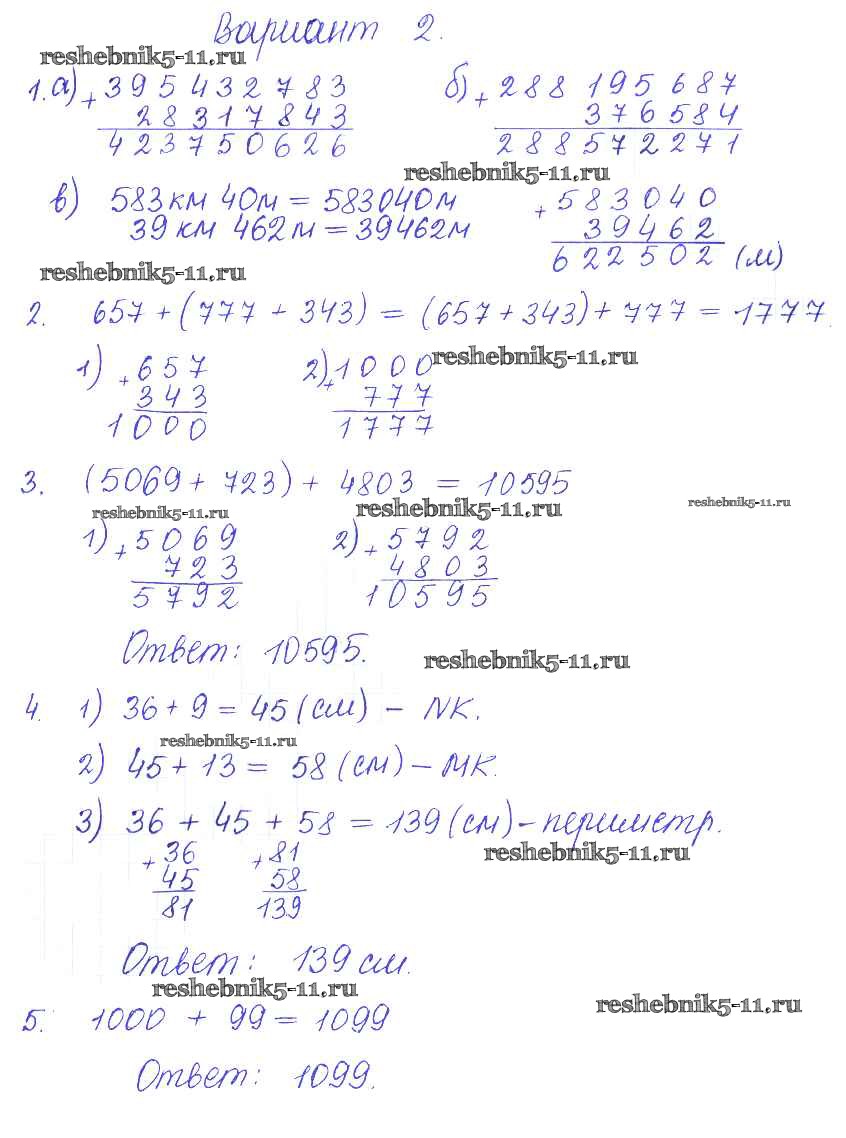 Вариант 2.
reshebnik5-11.ru
1. а) + 395432783
28317843
423750626
б) + 288 195 687
376 584
288572271
reshebnik5-11.ru
в) 583 км 40м = 583040м
39 км 462 м = 39462м
+ 583040
39462
622502 (м)
reshebnik5-11.ru
2. 657 + (777 + 343) = (657 + 343) + 777 = 1777.
reshebnik5-11.ru
1) + 657
343
1000
2) + 1000
777
1777
3. (5069 + 723) + 4803 = 10595
reshebnik5-11.ru reshebnik5-11.ru reshebnik5-11.ru
1) + 5069
723
5792
2) + 5792
4803
10595
Ответ: 10595.
reshebnik5-11.ru
4. 1) 36 + 9 = 45 (см) - NK.
reshebnik5-11.ru
2) 45 + 13 = 58 (см) - MK.
3) 36 + 45 + 58 = 139 (см) - периметр.
reshebnik5-11.ru
+ 36
45
81
+ 81
58
139
Ответ: 139 см.
reshebnik5-11.ru
reshebnik5-11.ru
5. 1000 + 99 = 1099
Ответ: 1099.